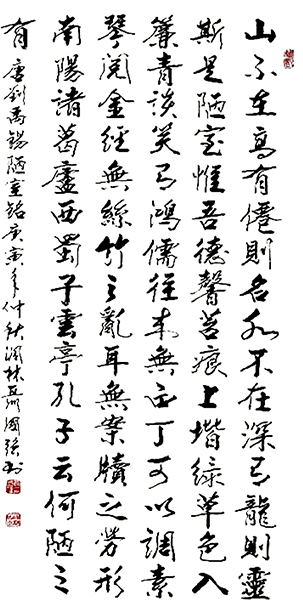 山不在高有僊則名水不在深有龍則靈
斯是陋室惟吾德馨苔痕上堦綠草色入
簾青談笑有鴻儒往來無白丁可以調素
琴閱金經無絲竹之亂耳無案牘之勞形
南陽諸葛廬西蜀子雲亭孔子云何陋之
有唐劉禹錫陋室銘庚寅年仲秋國強书